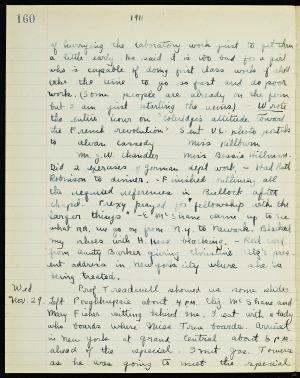 160
1911
of hurrying the laboratory work just to get thru
a little early. He said it is too bad for a girl
who is capable of doing first class work to
the to go so fast and do poor
work. (Some people are already on the fern
but I am just starting the ) Wrote
the entire hour on "Coleridge's attitude toward
the French revolution". Sent V.C. photo postals
to Alvan Cassedy Miss Kilburn
Mr. J. W. Chandler Miss Bessie Hillman.
Did 2 exercises of German dept work - Had Ruth
Robinson to dinner. - Finished all
the required references in Bullock after
chapel. Prexy prayed for "fellowship with the
larger things" - E. McShane came up to see
what R.R. we go on from N.Y. to Newark. Blacked
my shoes with H. blacking. - Red card
from Aunty Barker giving Christine pres-
ent address in New York City where she is
being treated.
Wed
Nov. 29.
Prof. Treadwell showed us some slides.
Left Poughkeepsie about 4 P.M. Eliz. McShane and
Mary Fisher sitting behind me. I sat with a lady
who boards where Miss Tms boards. Arrived
in New York at Grand Central about 6 P.M.
ahead of the special. I met Jas. Towers
as he was going to meet the special